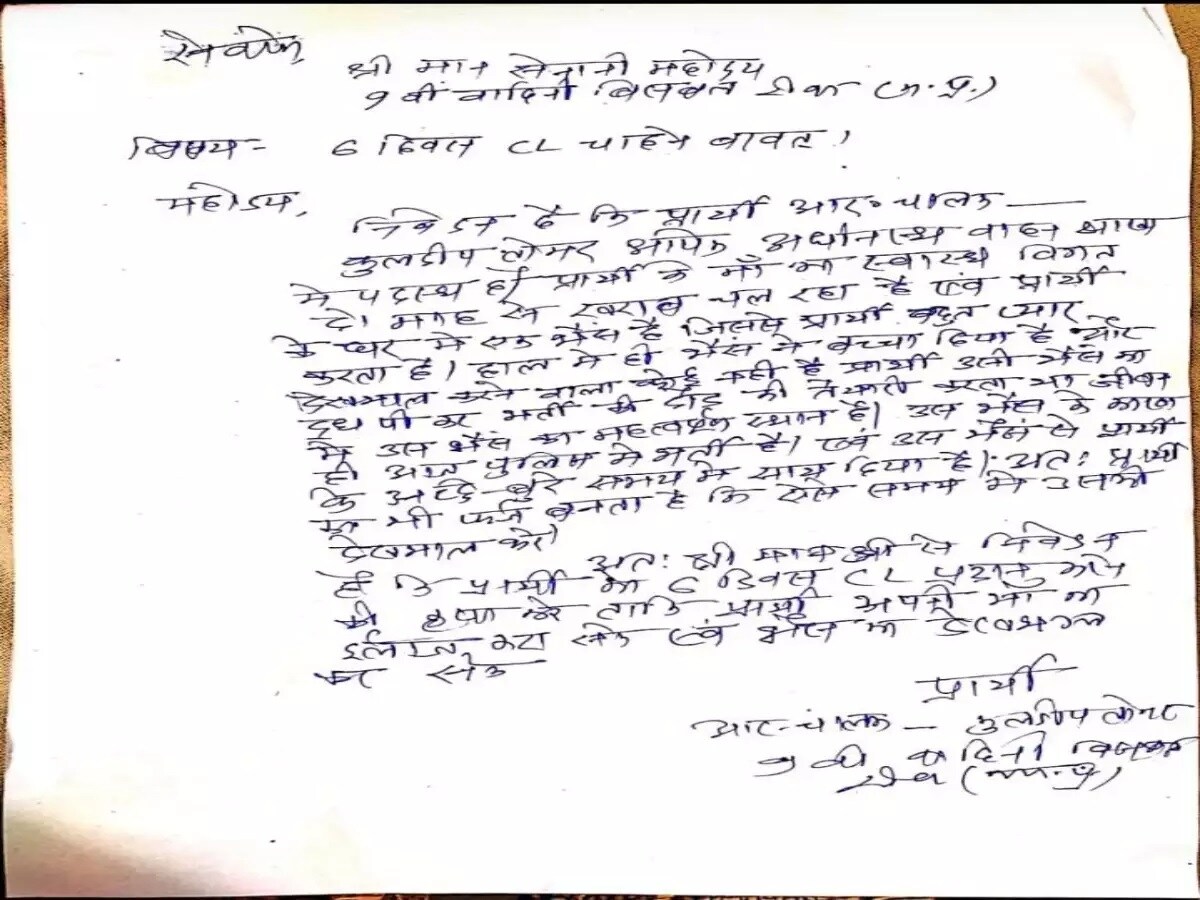 सेवामें,
श्री मान सेनानी महोदय
9 वी वाहिनी विसबल रीवा (म.प्र.)
विषय- 6 दिवस CL चाहने बावत।
महोदय,
निवेदन है कि प्रार्थी आर. चालक —
कुलदीप तोमर आपके अधीनस्थ वाहन शाखा
मे पदस्थ है। प्रार्थी के माँ का स्वास्थ विगत
दो माह से खराब चल रहा है एवं प्रार्थी
के घर मे एक भैंस है, जिससे प्रार्थी बहुत प्यार
करता है। हाल मे ही भैंस ने बच्चा दिया है और
देखभाल करने वाला कोई नही है प्रार्थी उसी भैंस का
दूध पी कर भर्ती की दौड की तैयारी करता था जीवन
मे उस भैंस का महत्वपूर्ण स्थान है। उस भैंस के कारण
ही आज पुलिस मे भर्ती है। एवं उस भैंस ने प्रार्थी
के अच्छे बुरे समय मे साथ दिया है। अतः प्रार्थी
का भी फर्ज बनता है कि ऐसे समय मे उसकी
देखभाल करे।
अतः श्री मान जी से निवेदन
है कि प्रार्थी को 6 दिवस CL प्रदान करने
की कृपा करे ताकि प्रार्थी अपनी माँ का
ईलाज करा सके एवं भैंस का देखभाल
कर सके
प्रार्थी
आर. चालक — कुलदीप तोमर
9 वी वाहिनी विसबल
रीवा (म.प्र)